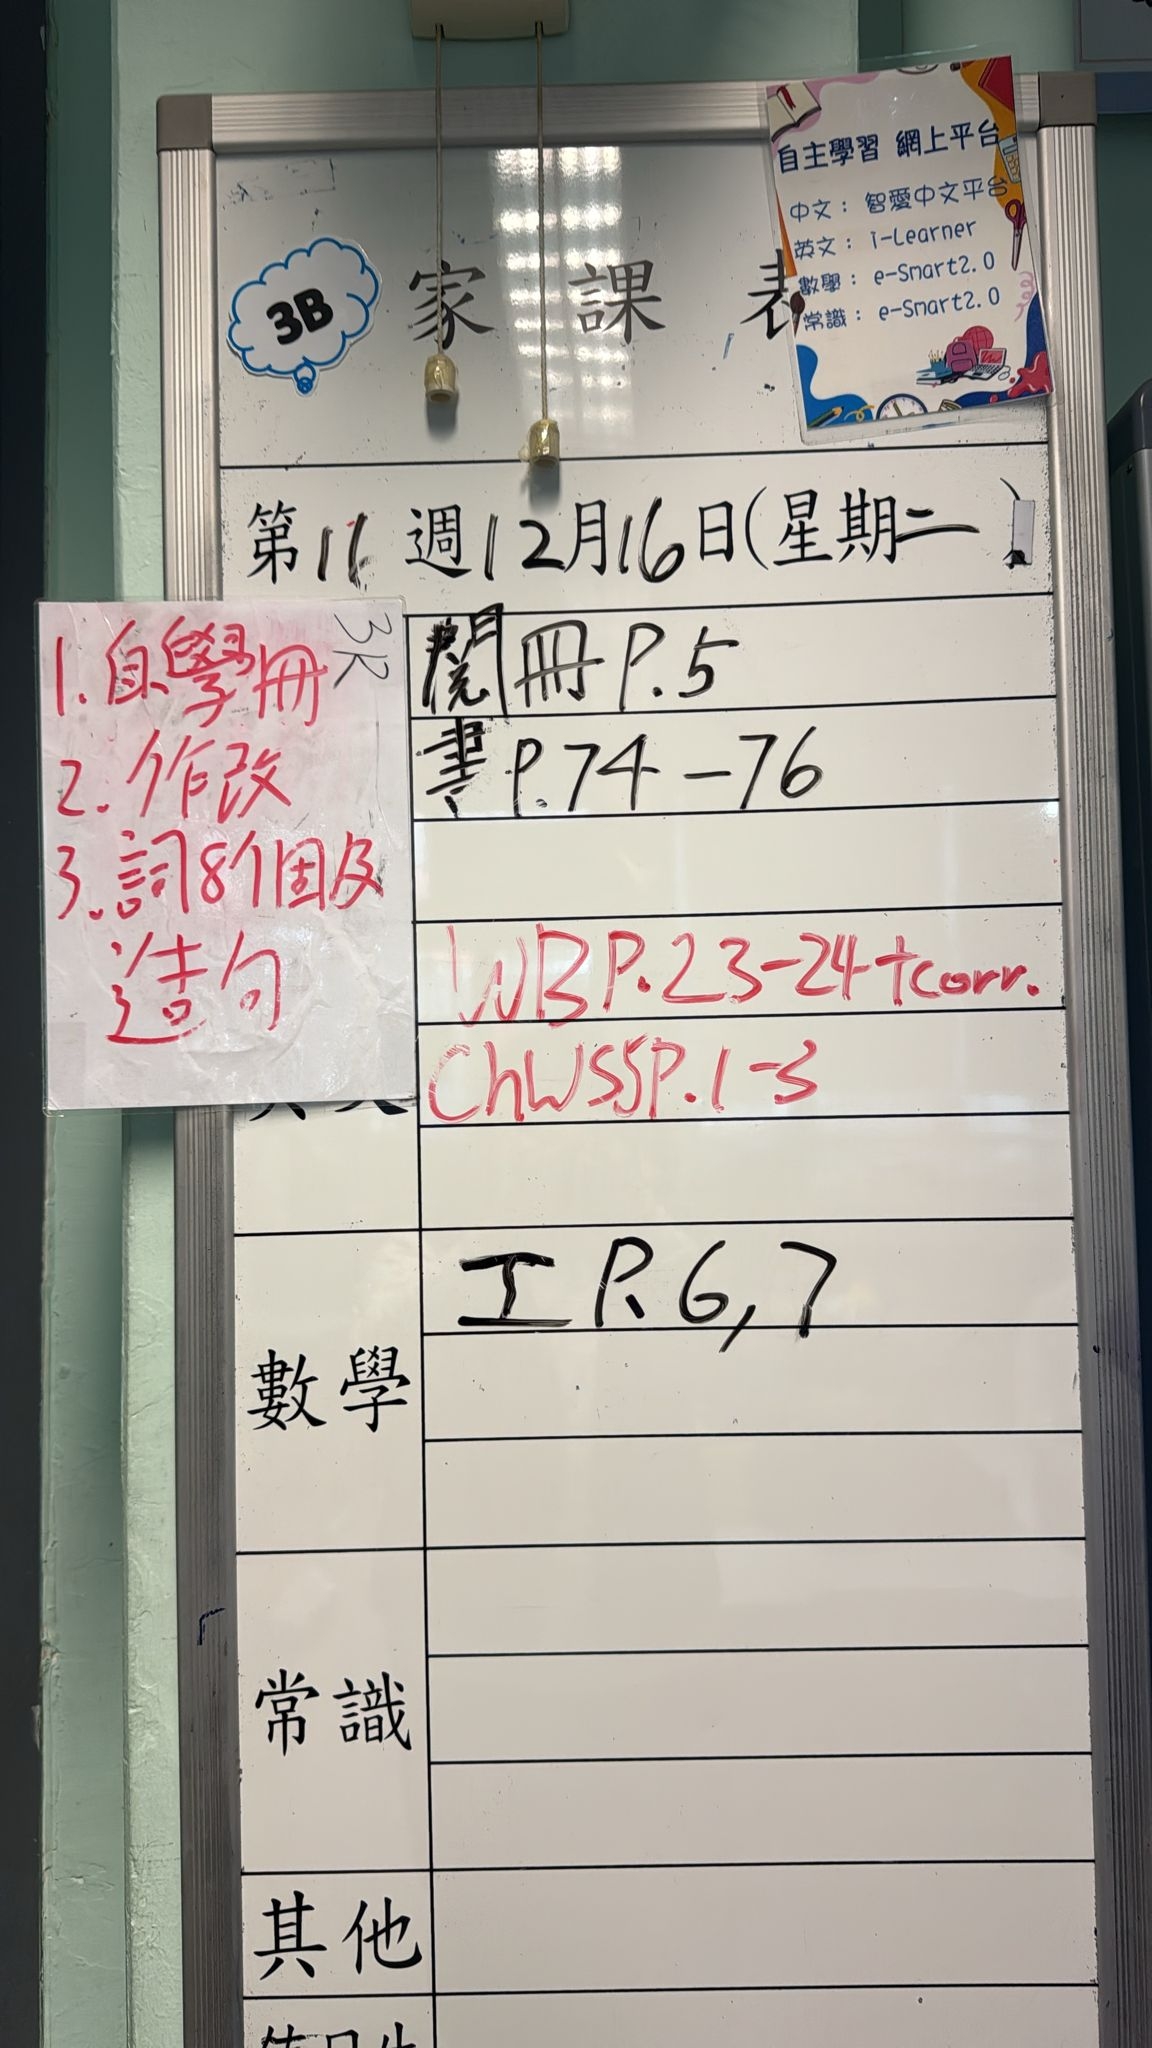 自主學習 網上平台
中文： 智愛中文平台
英文： i-Learner
數學： e-Smart2.0
常識： e-Smart2.0
3B
家 課 表
第11週12月16日(星期二)
3R
1. 自學冊
2. 作改
3. 詞8個及
造句
閱冊 P.5
書 P.74-76
WB P.23-24+corr.
ChWS5 P.1-3
數學
工 P.6,7
常識
其他